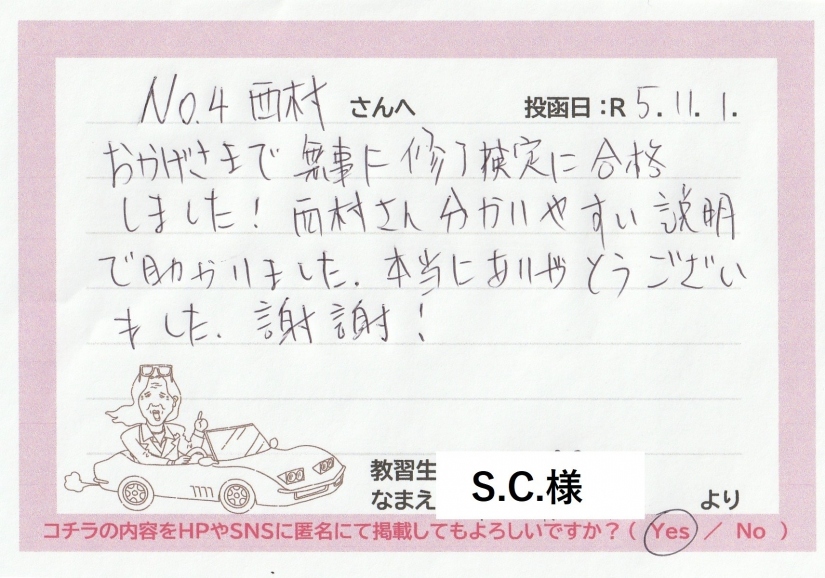 No.4 西村 さんへ 投函日：R 5.11.1.
おかげさまで 無事に 修了検定に 合格
しました！ 西村さん 分かりやすい 説明
で助かりました. 本当にありがとうござい
ました. 謝謝！
教習生
なまえ S.C.様 より
コチラの内容をHPやSNSに匿名にて掲載してもよろしいですか？（ Yes ／ No ）